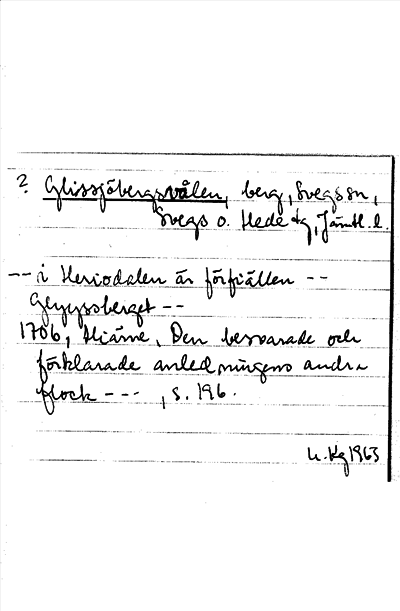 ? Glissjöbergsvålen, berg, Svegs sn,
Svegs o. Hede tg, Jämtl. l.
-- i Heriodalen är förfiällen --
Glyyssberget --
1706, Hiärne, Den besvarade och
förklarade anledningens andra
flock --- , s. 196.
Kg 1963